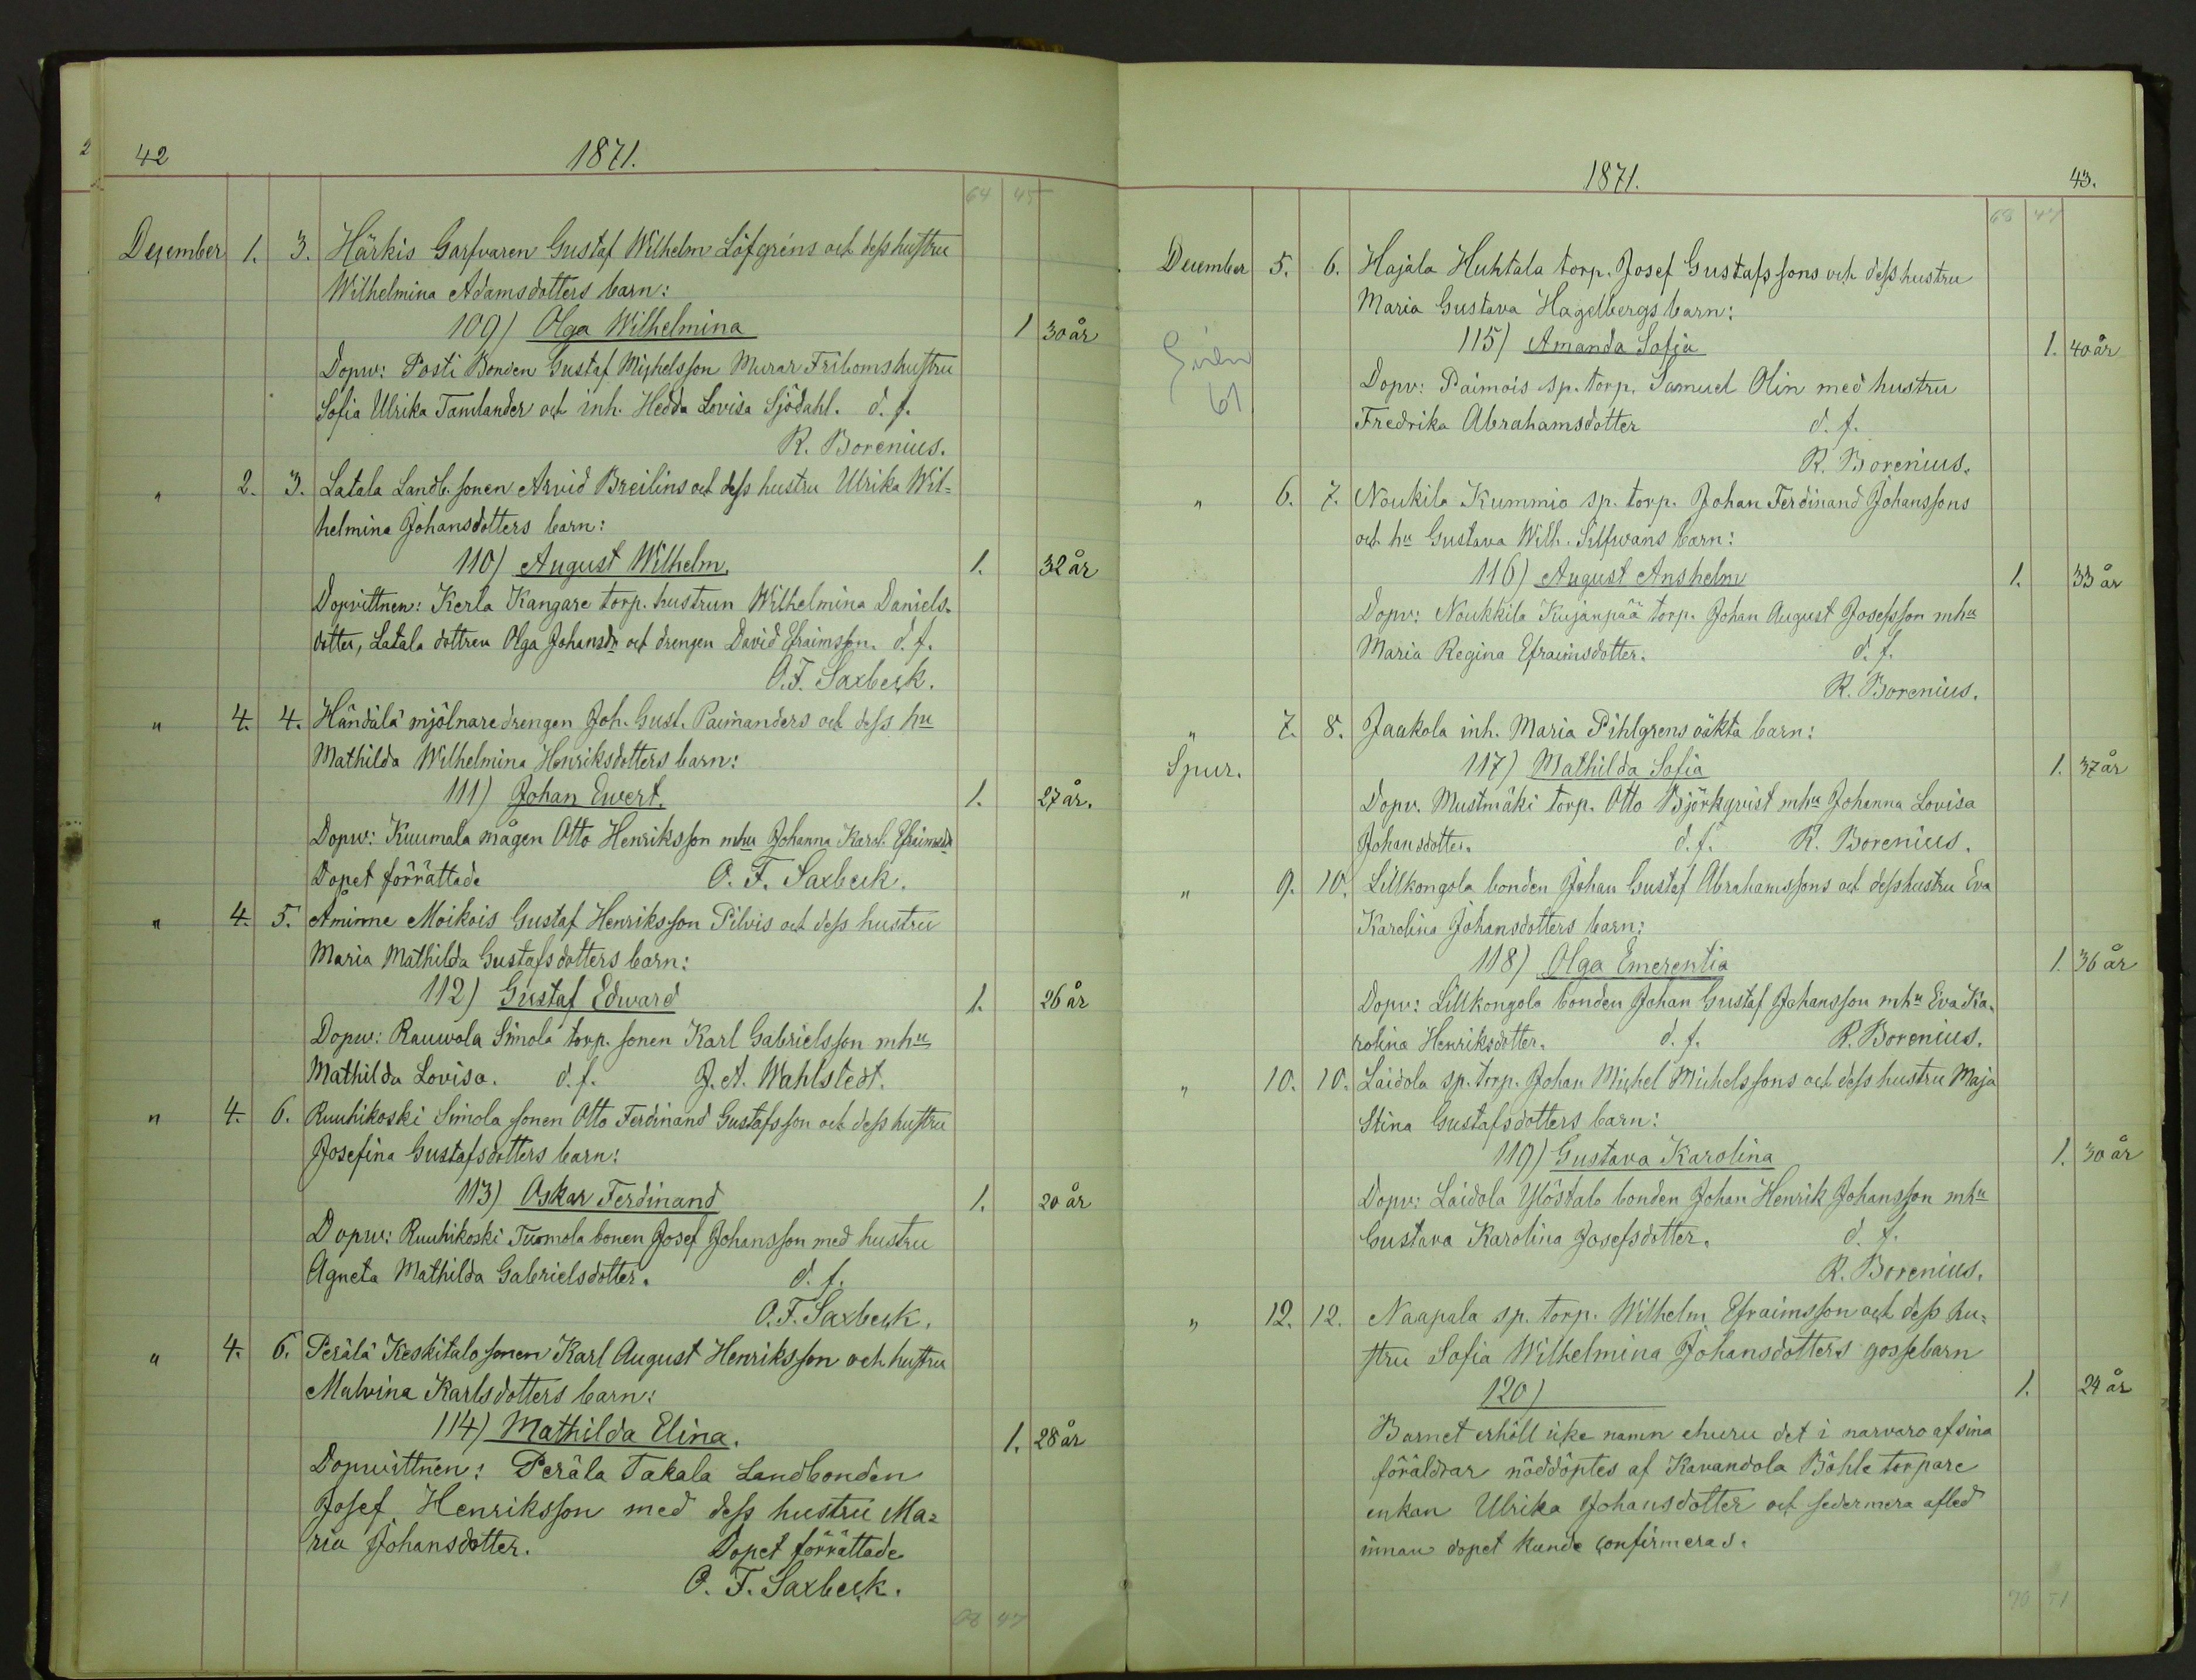 2
42
1871.
64 45
December 1. 3. Härkis Garfvaren Gustaf Wilhelm Löfgréns och dess hustru
Wilhelmina Adamsdotters barn:
109) Olga Wilhelmina 1 30 år
Dopw: Posti Bonden Gustaf Michelsson Murar Fribomshustru
Sofia Ulrika Tamlander och inh. Hedda Lovisa Sjödahl. d. f.
R. Borenius.
" 2. 3. Latala Landb. sonen Arvid Breilins och dess hustru Ulrika Wil=
helmina Johansdotters barn:
110) August Wilhelm. 1. 32 år
Dopvittnen: Kerla Kangare torp. hustrun Wilhelmina Daniels-
dotter, Latala dottren Olga Johansdr och drengen David Efraimsson. d. f.
O. F. Saxbeck.
" 4. 4. Händälä mjölnaredrengen Joh. Gust. Paimanders och dess hu
Mathilda Wilhelmina Henriksdotters barn:
111) Johan Ewert. 1. 27 år.
Dopw: Kuumala mågen Otto Henriksson mhu Johanna Karol. Efraimsdr
Dopet förrättade O. F. Saxbeck.
" 4. 5. Åminne Moikois Gustaf Henriksson Pilvis och dess hustru
Maria Mathilda Gustafsdotters barn:
112) Gustaf Edward 1. 26 år
Dopw: Rauwola Simola torp. sonen Karl Gabrielsson mhu
Mathilda Lovisa. d. f. J. A. Wahlstedt.
" 4. 6. Ruuhikoski Simola sonen Otto Ferdinand Gustafsson och dess hustru
Josefina Gustafsdotters barn:
113) Oskar Ferdinand 1. 20 år
Dopw: Ruuhikoski Tuomola bonen Josef Johansson med hustru
Agneta Mathilda Gabrielsdotter. d. f.
O. F. Saxbeck.
" 4. 6. Perälä Keskitalo sonen Karl August Henriksson och hustru
Malvina Karlsdotters barn:
114) Mathilda Elina. 1. 28 år
Dopwittnen: Peräla Takala Landbonden
Josef Henriksson med dess hustru Ma=
ria Johansdotter. Dopet förrättade
O. F. Saxbeck.
68 47
1871.
43.
68 47
December 5. 6. Hajala Huhtala torp. Josef Gustafssons och dess hustru
Maria Gustava Hagelbergs barn:
115) Amanda Sofia 1. 40 år
61
Dopv: Paimois sp. torp. Samuel Olin med hustru
Fredrika Abrahamsdotter d. f.
R. Borenius.
" 6. 7. Noukila Kummio sp. torp. Johan Ferdinand Johanssons
och hu Gustava Wilh. Silfwans barn:
116) August Anshelm 1. 33 år
Dopw: Noukkila Kujanpää torp. Johan August Josefsson mhu
Maria Regina Efraimsdotter. d. f.
R. Borenius.
" 7. 8. Jaakola inh. Maria Pihlgrens oäkta barn:
Spur. 117) Mathilda Sofia 1. 37 år
Dopv. Mustmäki torp. Otto Björkqvist mhu Johanna Lovisa
Johansdotter. d. f. R. Borenius.
" 9. 10. Lillkongola bonden Johan Gustaf Abrahamssons och dess hustru Eva
Karolina Johansdotters barn:
118) Olga Emerentia 1. 36 år
Dopv: Lillkongola bonden Johan Gustaf Johansson mhu Eva Ka-
rolina Henriksdotter. d. f. R. Borenius.
" 10. 10. Laidola sp. torp. Johan Michel Michelssons och dess hustru Maja
Stina Gustafsdotters barn:
119) Gustava Karolina 1. 30 år
Dopv: Laidola Ylöstalo bonden Johan Henrik Johansson mhu
Gustava Karolina Josefsdotter. d. f.
R. Borenius.
" 12. 12. Naapala sp. torp. Wilhelm Efraimsson och dess hu=
stru Sofia Wilhelmina Johansdotters gossebarn
120) 1. 24 år
Barnet erhöll icke namn ehuru det i narvaro af sina
föräldrar nöddöptes af Kavandola Böhle torpare
enkan Ulrika Johansdotter och sedermera afled
innan dopet kunde confirmeras.
70 51